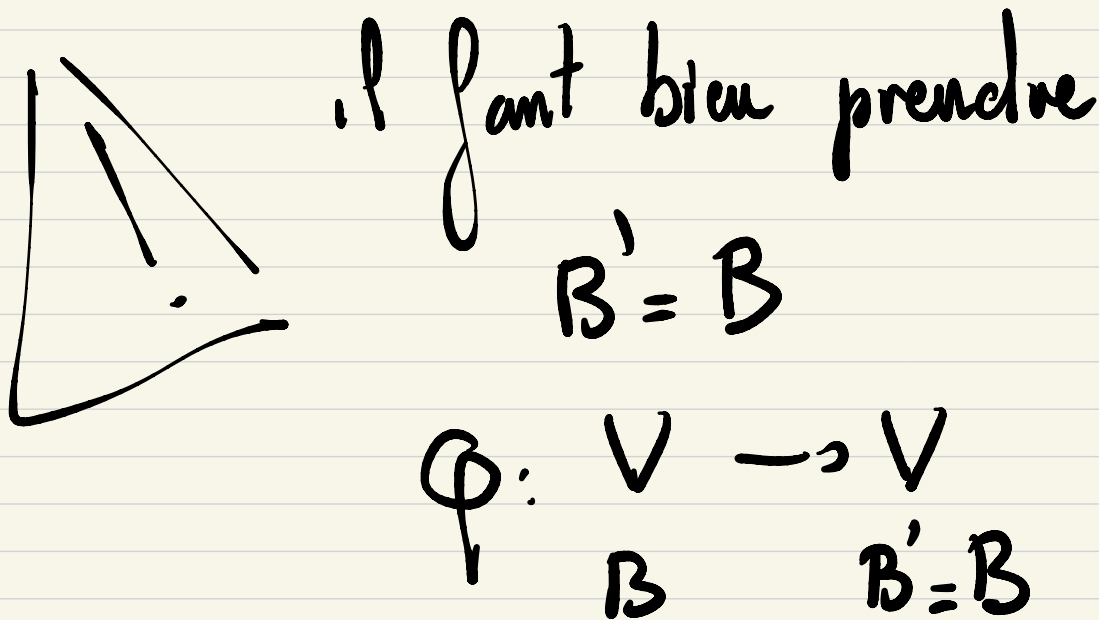 il faut bien prendre
B' = B
φ: V → V
B B' = B